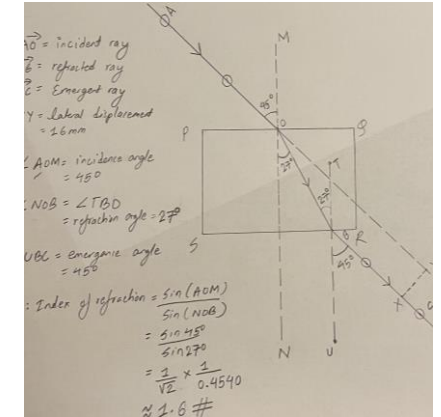 AO = incident ray
B = refracted ray
C = Emergent ray
Y = lateral displacement
= 16mm
∠AOM = incidence angle
= 45°
NOB = ∠TBO
= refraction angle = 27°
UBC = emergence angle
= 45°
: Index of refraction = sin(AOM)
sin(NOB)
= sin45°
sin27°
= 1/√2 × 1/0.4540
≈ 1.6 #
A
M
45°
O
P
Q
27°
T
27°
B
R
S
45°
X
C
N
U